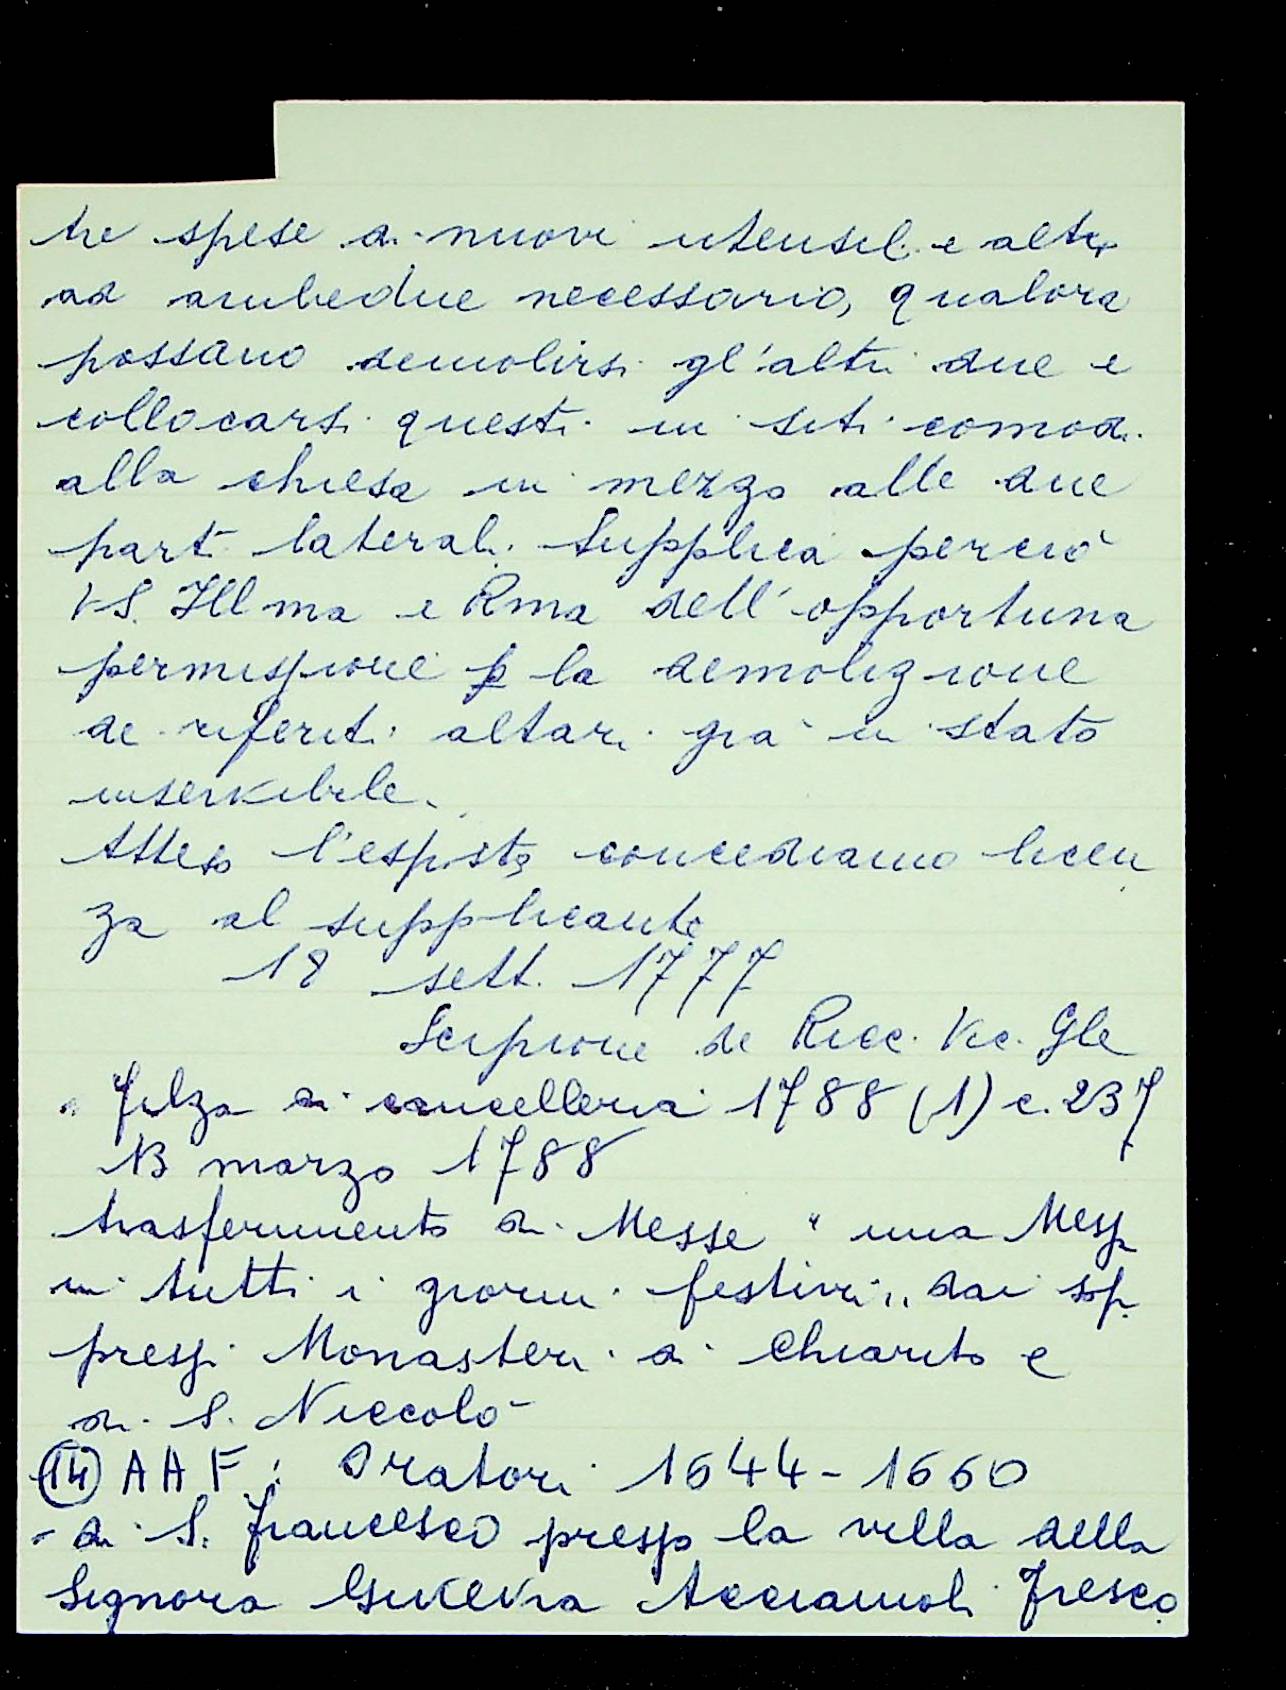 tre spese di nuovi utensili e altro
ad ambedue necessario, qualora
possano demolirsi gl'altri due e
collocarsi questi in siti comodi
alla chiesa in mezzo alle due
parti laterali. Supplica perciò
VS. Illma e Rma dell'opportuna
permissione p la demolizione
de riferiti altari già in stato
inservibile.
Atteso l'esposto concediamo licen
za al supplicante
18 sett. 1777
Scipione de Ricci Vic. Gle
" filza di cancelleria 1788 (1) c. 237
13 marzo 1788
trasferimento di Messe " una Messa
in tutti i giorni festivi " dai sop
pressi Monasteri di Chiarito e
di S. Niccolò
(14) AAF: Oratori 1644-1660
- di S. Francesco presso la villa della
Signora Ginevra Acciaiuoli Fresco